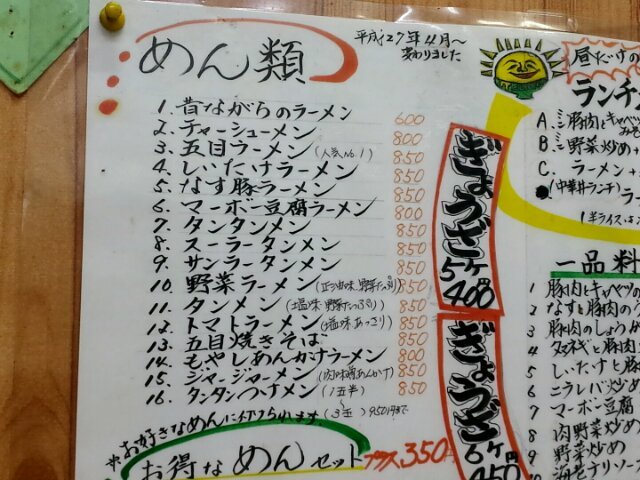 めん類
平成27年4月～
変わりました
1. 昔ながらのラーメン 600
2. チャーシューメン 800
3. 五目ラーメン (人気No.1) 850
4. しいたけラーメン 850
5. なす豚ラーメン 850
6. マーボー豆腐ラーメン 800
7. タンタンメン 850
8. スーラータンメン 850
9. サンラータンメン 850
10. 野菜ラーメン (正油味 野菜たっぷり) 850
11. タンメン (塩味 野菜たっぷり) 850
12. トマトラーメン (塩味 あっさり) 850
13. 五目焼きそば 850
14. もやしあんかけラーメン 800
15. ジャージャーメン (肉味噌あんかけ) 850
16. タンタンつけメン (1玉半 850
～3玉) 950円まで
*お好きなめんに
お得なめんセット プラス350
ぎょうざ
5ヶ
400円
ぎょうざ
6ヶ
450円
昼だけの
ランチ
A. 豚肉とキャベツ
B. 野菜炒め+
C. ラーメン+
(中華丼ランチ) ラー
一品料
1. 豚肉とキャベツの
2. なすと豚肉の
3. 豚肉のしょうが
4. タマネギと豚肉
5. しいたけと豚
6. ニラレバ炒め
7. マーボー豆腐
8. 肉野菜炒め
9. 野菜炒め
10. 海老チリソース